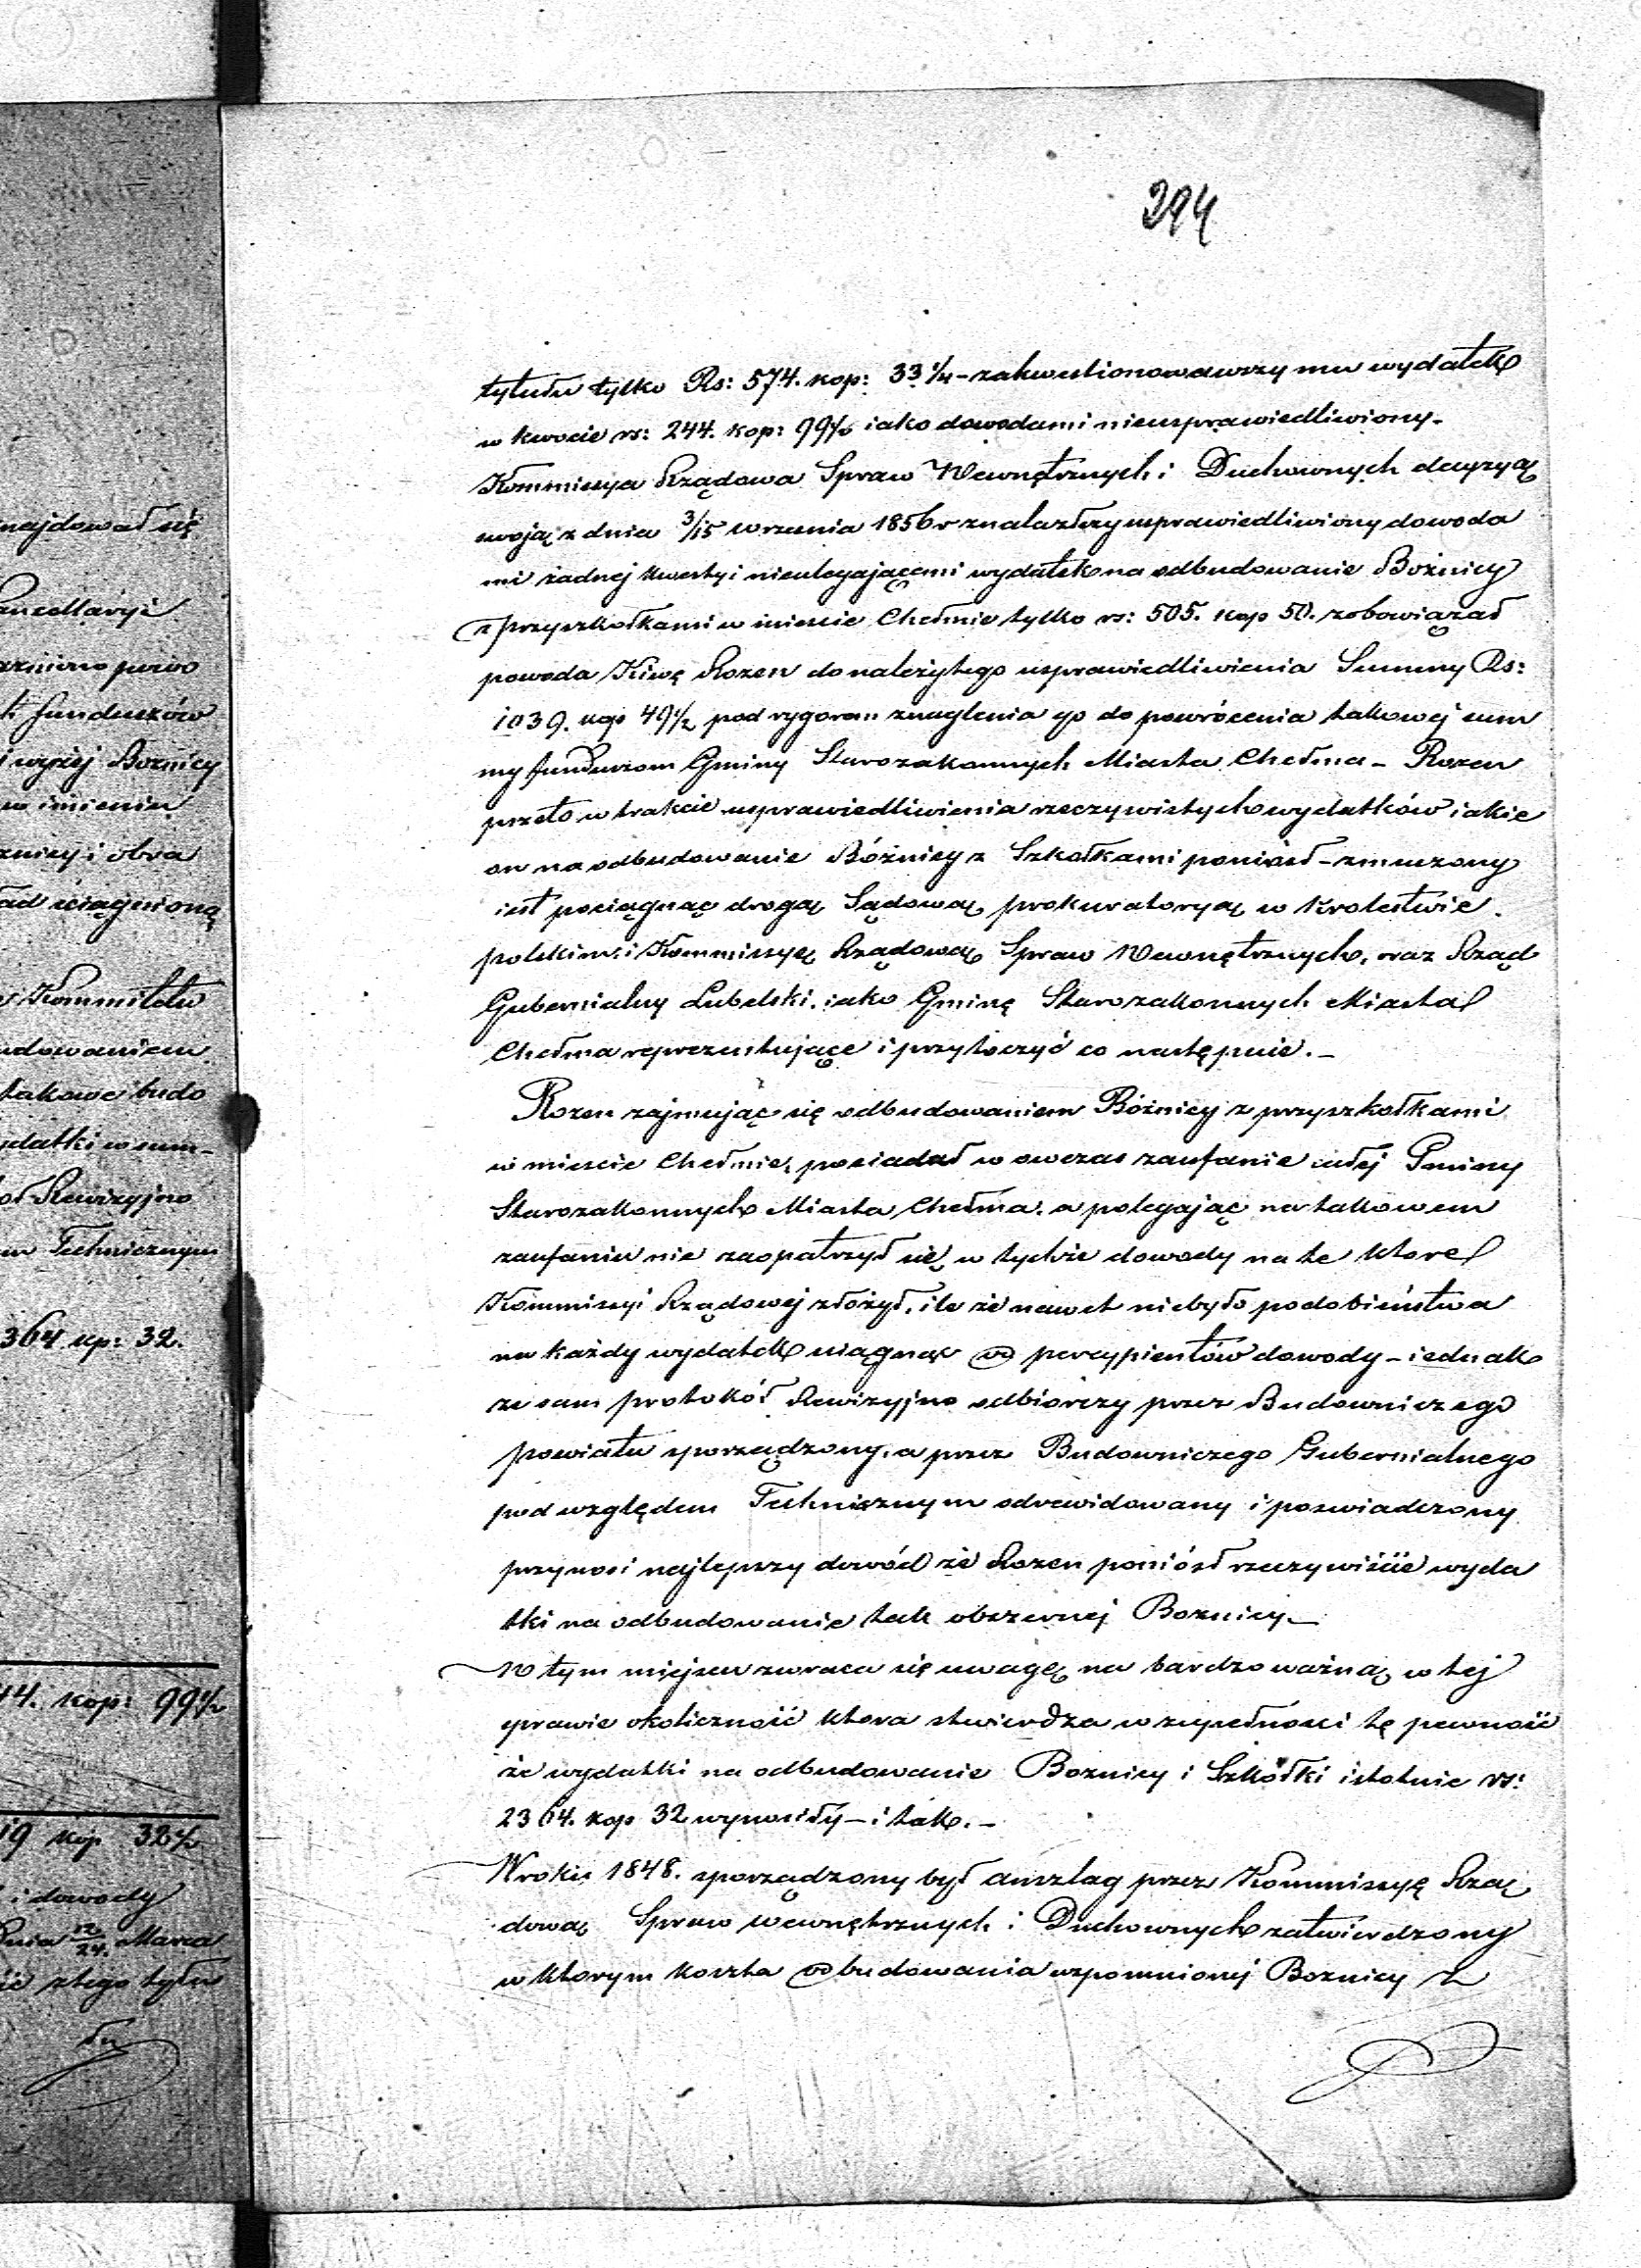 najdował się
ancellaryi
h funduszów
i wyżej Boznicy
w imieniu
znicy i obra
ad ściągnioną
Kommitetu
udowaniem
takowe budo
ydatki w sum-
Rewizyjno
Technicznym
364 kp: 32.
44. kop: 99½
19 kop 32½
i dowody
dnia 12/24. Marca
ić z tego tytu
łu
294
tytułu tylko Rs: 574. kop: 33¼ - zakwestionowawszy mu wydatek
w kwocie rs: 244. kop: 99½ iako dowodami nieusprawiedliwiony.
Kommissya Rządowa Spraw Wewnętrznych i Duchownych decyzyą
swoją z dnia 3/15 wrzesnia 1856 r znalazłszy usprawiedliwiony dowoda
mi żadnej kwestyi nieulegającemi wydatek na odbudowanie Bożnicy
z przyszkołkami w mieście Chełmie tylko rs: 505. kop 50. zobowiązał
powoda Kiwę Rozen do należytego usprawiedliwienia Summy Rs:
1039. kop 49½ pod rygorem znaglenia go do powrócenia takowej sum
my funduszom Gminy Starozakonnych Miasta Chełma - Rozen
przeto w trakcie usprawiedliwienia rzeczywistych wydatków iakie
on na odbudowanie Bóżnicy z Szkołkami poniósł - zmuszony
iest pociągnąć drogą Sądową prokuratoryą w Krolestwie
polskim i Kommissyę Rządową Spraw Wewnętrznych, oraz Rząd
Gubernialny Lubelski, iako Gminę Starozakonnych Miasta
Chełma reprezentujące i przytoczyć co następuie. -
Rozen zajmując się odbudowaniem Bóżnicy z przyszkołkami
w miescie Chełmie, posiadał w owczas zaufanie całej Gminy
Starozakonnych Miasta Chełma, a polegając na takowem
zaufaniu nie zaopatrzył się w tychże dowody na te ktore
Kommissyi Rządowej złożył, ile że nawet niebyło podobieństwa
na każdy wydatek ściągnąć od percypientów dowody - iednak
ze sam protokół Rewizyjno odbiorczy przez Budowniczego
powiatu sporządzony, a przez Budowniczego Gubernialnego
pod względem Technicznym odrewidowany i poswiadczony
przynosi najlepszy dowód że Rozen poniósł rzeczywiście wyda
tki na odbudowanie tak obszernej Boznicy. -
W tym miejscu zwraca się uwagę na bardzo ważną w tej
sprawie okoliczność ktora stwierdza w zupełności tę pewność
że wydatki na odbudowanie Boznicy i Szkółki istotnie rs:
2364. kop 32 wynosiły - i tak. -
W roku 1848. sporządzony był anszlag przez Kommissyę Rzą
dową Spraw wewnętrznych i Duchownych zatwierdzony
w ktorym koszta odbudowania wspomnionej Boznicy z